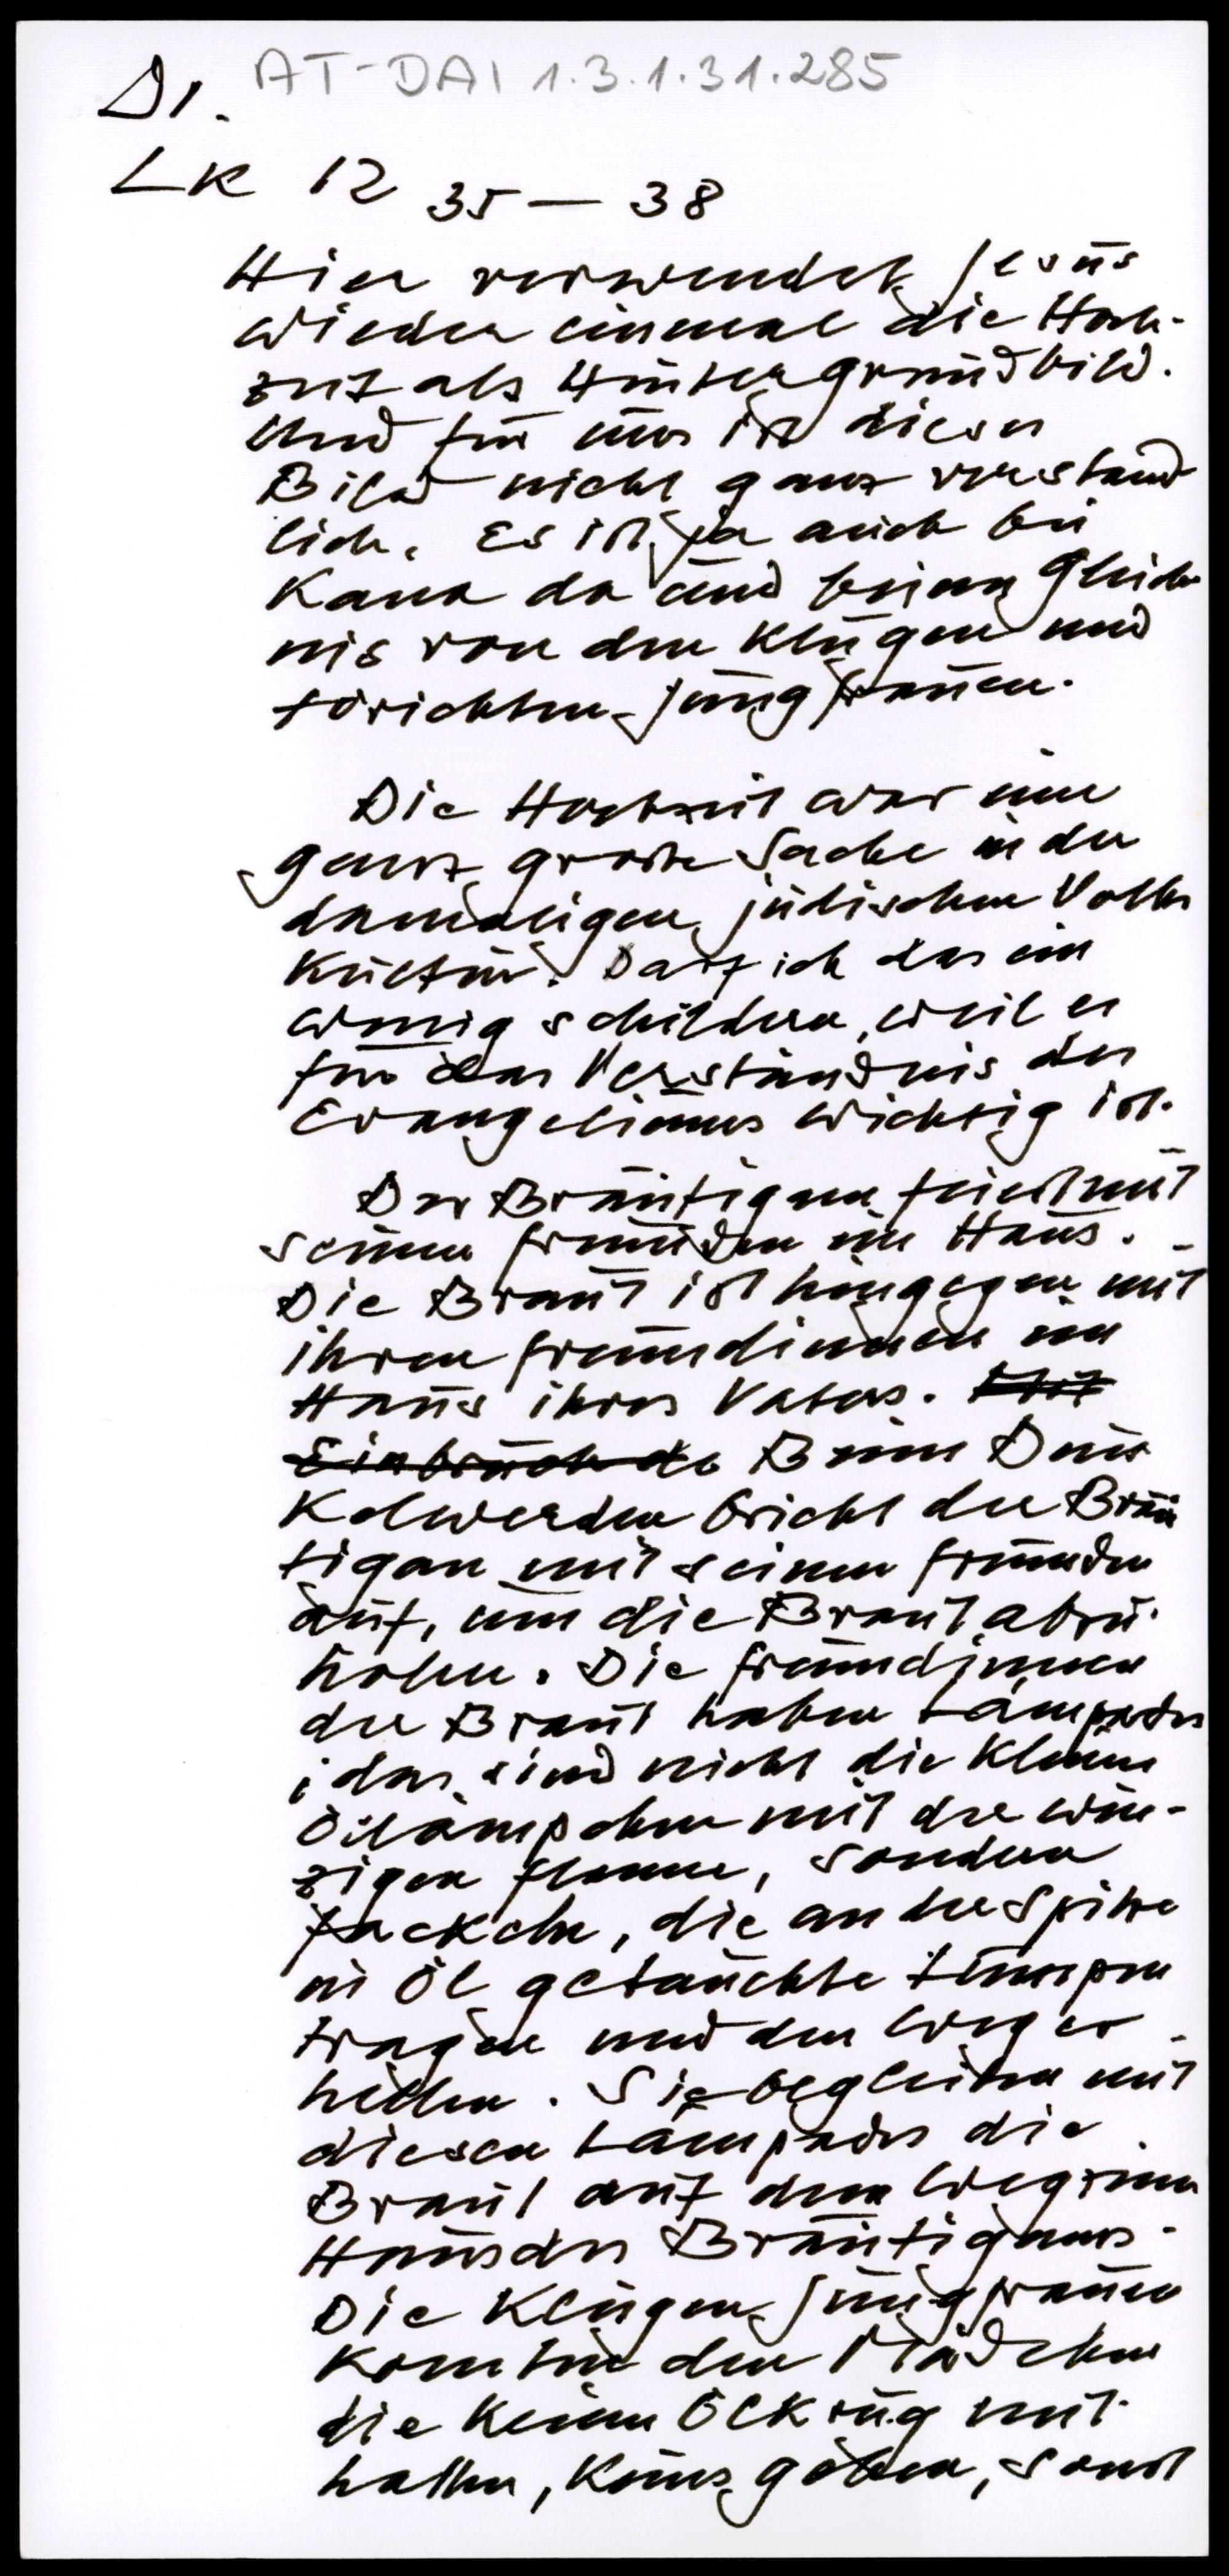 AT-DAI 1.3.1.31.285
Di.
Lk 12 35 — 38
Hier verwendet Jesus
wieder einmal die Hoch-
zeit als Hintergrundbild.
Und für uns ist dieses
Bild nicht ganz verständ
lich. Es ist ja auch bei
Kana da und beim Gleich
nis von den klugen und
törichten Jungfrauen.
Die Hochzeit war eine
ganz große Sache in der
damaligen jüdischen Volks
kultur. Darf ich das ein
wenig schildern, weil es
für das Verständnis des
Evangeliums wichtig ist.
Der Bräutigam feiert mit
seinen Freunden im Haus.
Die Braut ist hingegen mit
ihren Freundinnen im
Haus ihres Vaters. Mit
Einbruch de Beim Dun
kelwerden bricht der Bräu
tigam mit seinen Freunden
auf, um die Braut abzu-
holen. Die Freundinnen
der Braut haben Lampades
; das sind nicht die kleinen
Öllämpchen mit der win-
zigen Flamme, sondern
Fackeln, die an der Spitze
in Öl getauchte Lumpen
tragen und den Weg er
hellen. Sie begleiten mit
diesen Lampades die
Braut auf dem Weg zum
Haus des Bräutigams.
Die klugen Jungfrauen
konnten den Mädchen
die keinen Ölkrug mit
hatten, keines geben, sonst